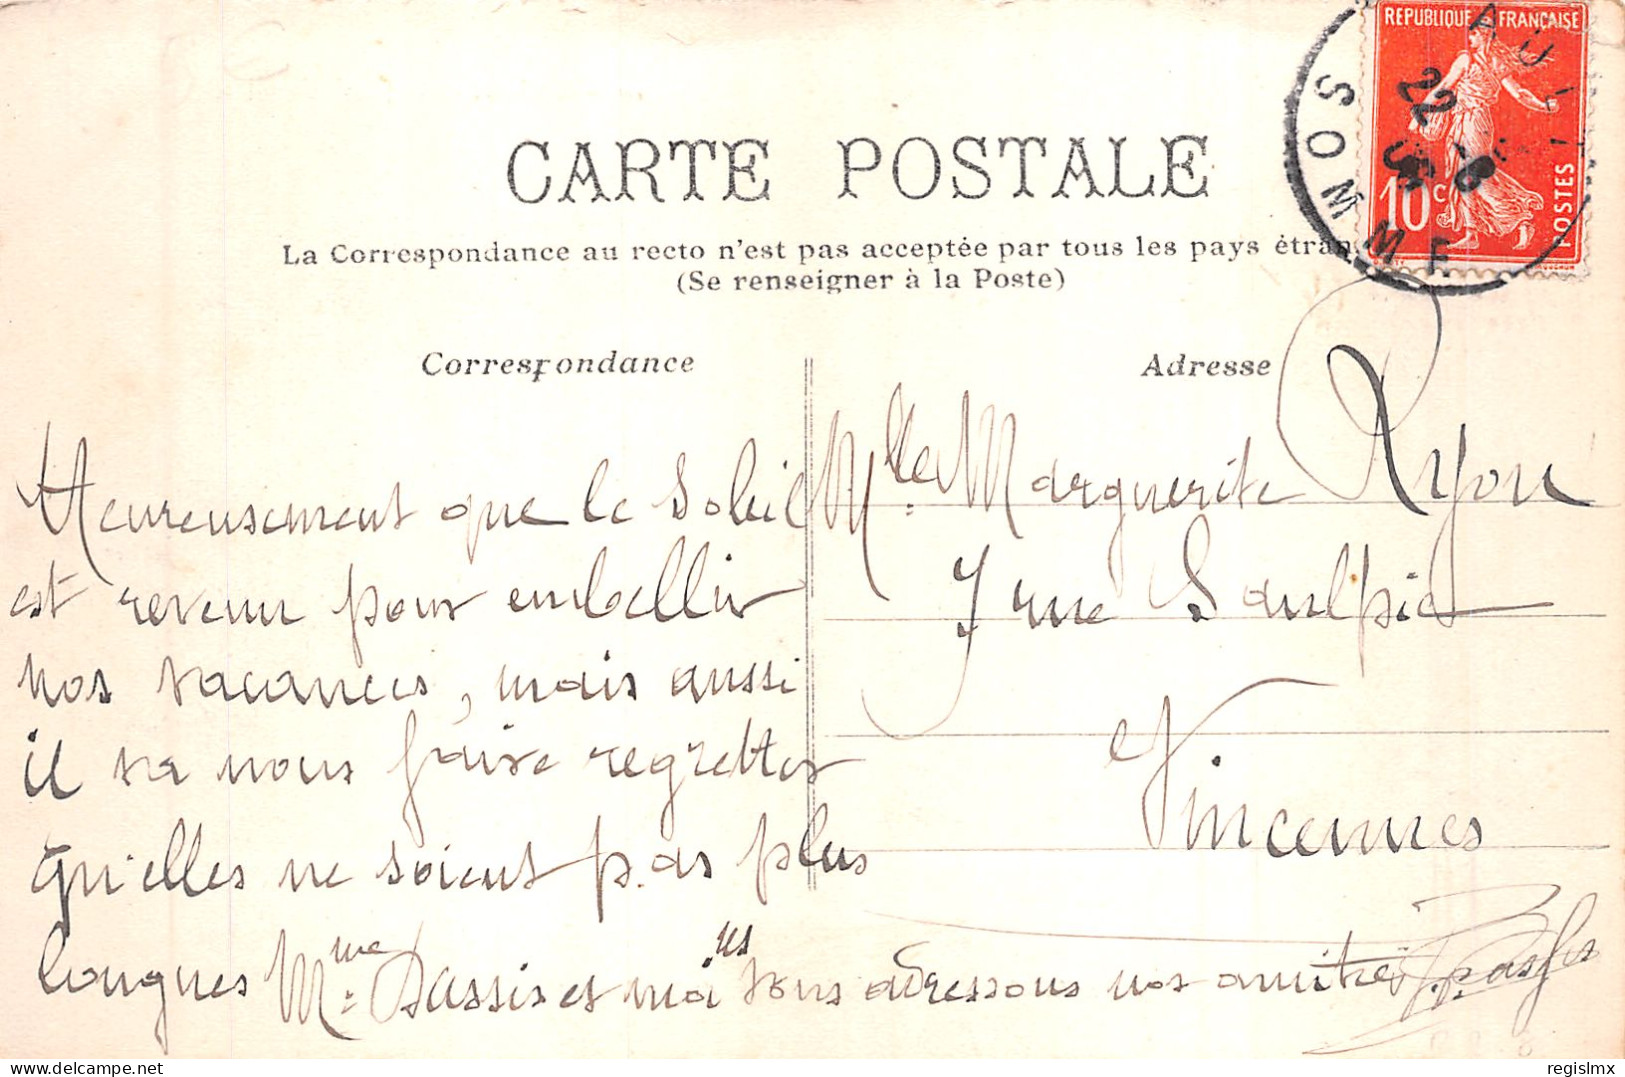 RÉPUBLIQUE FRANÇAISE
10c
POSTES
AUL
22 -8
SOMME
CARTE POSTALE
La Correspondance au recto n'est pas acceptée par tous les pays étran
(Se renseigner à la Poste)
Correspondance
Heureusement que le Soleil
est revenu pour embellir
nos vacances, mais aussi
il va nous faire regretter
qu'elles ne soient pas plus
longues Mme Dassis et moi vous adressons nos amitiés
Adresse
Mlle Marguerite Ryon
7 rue Saulpic
Vincennes
regislmx